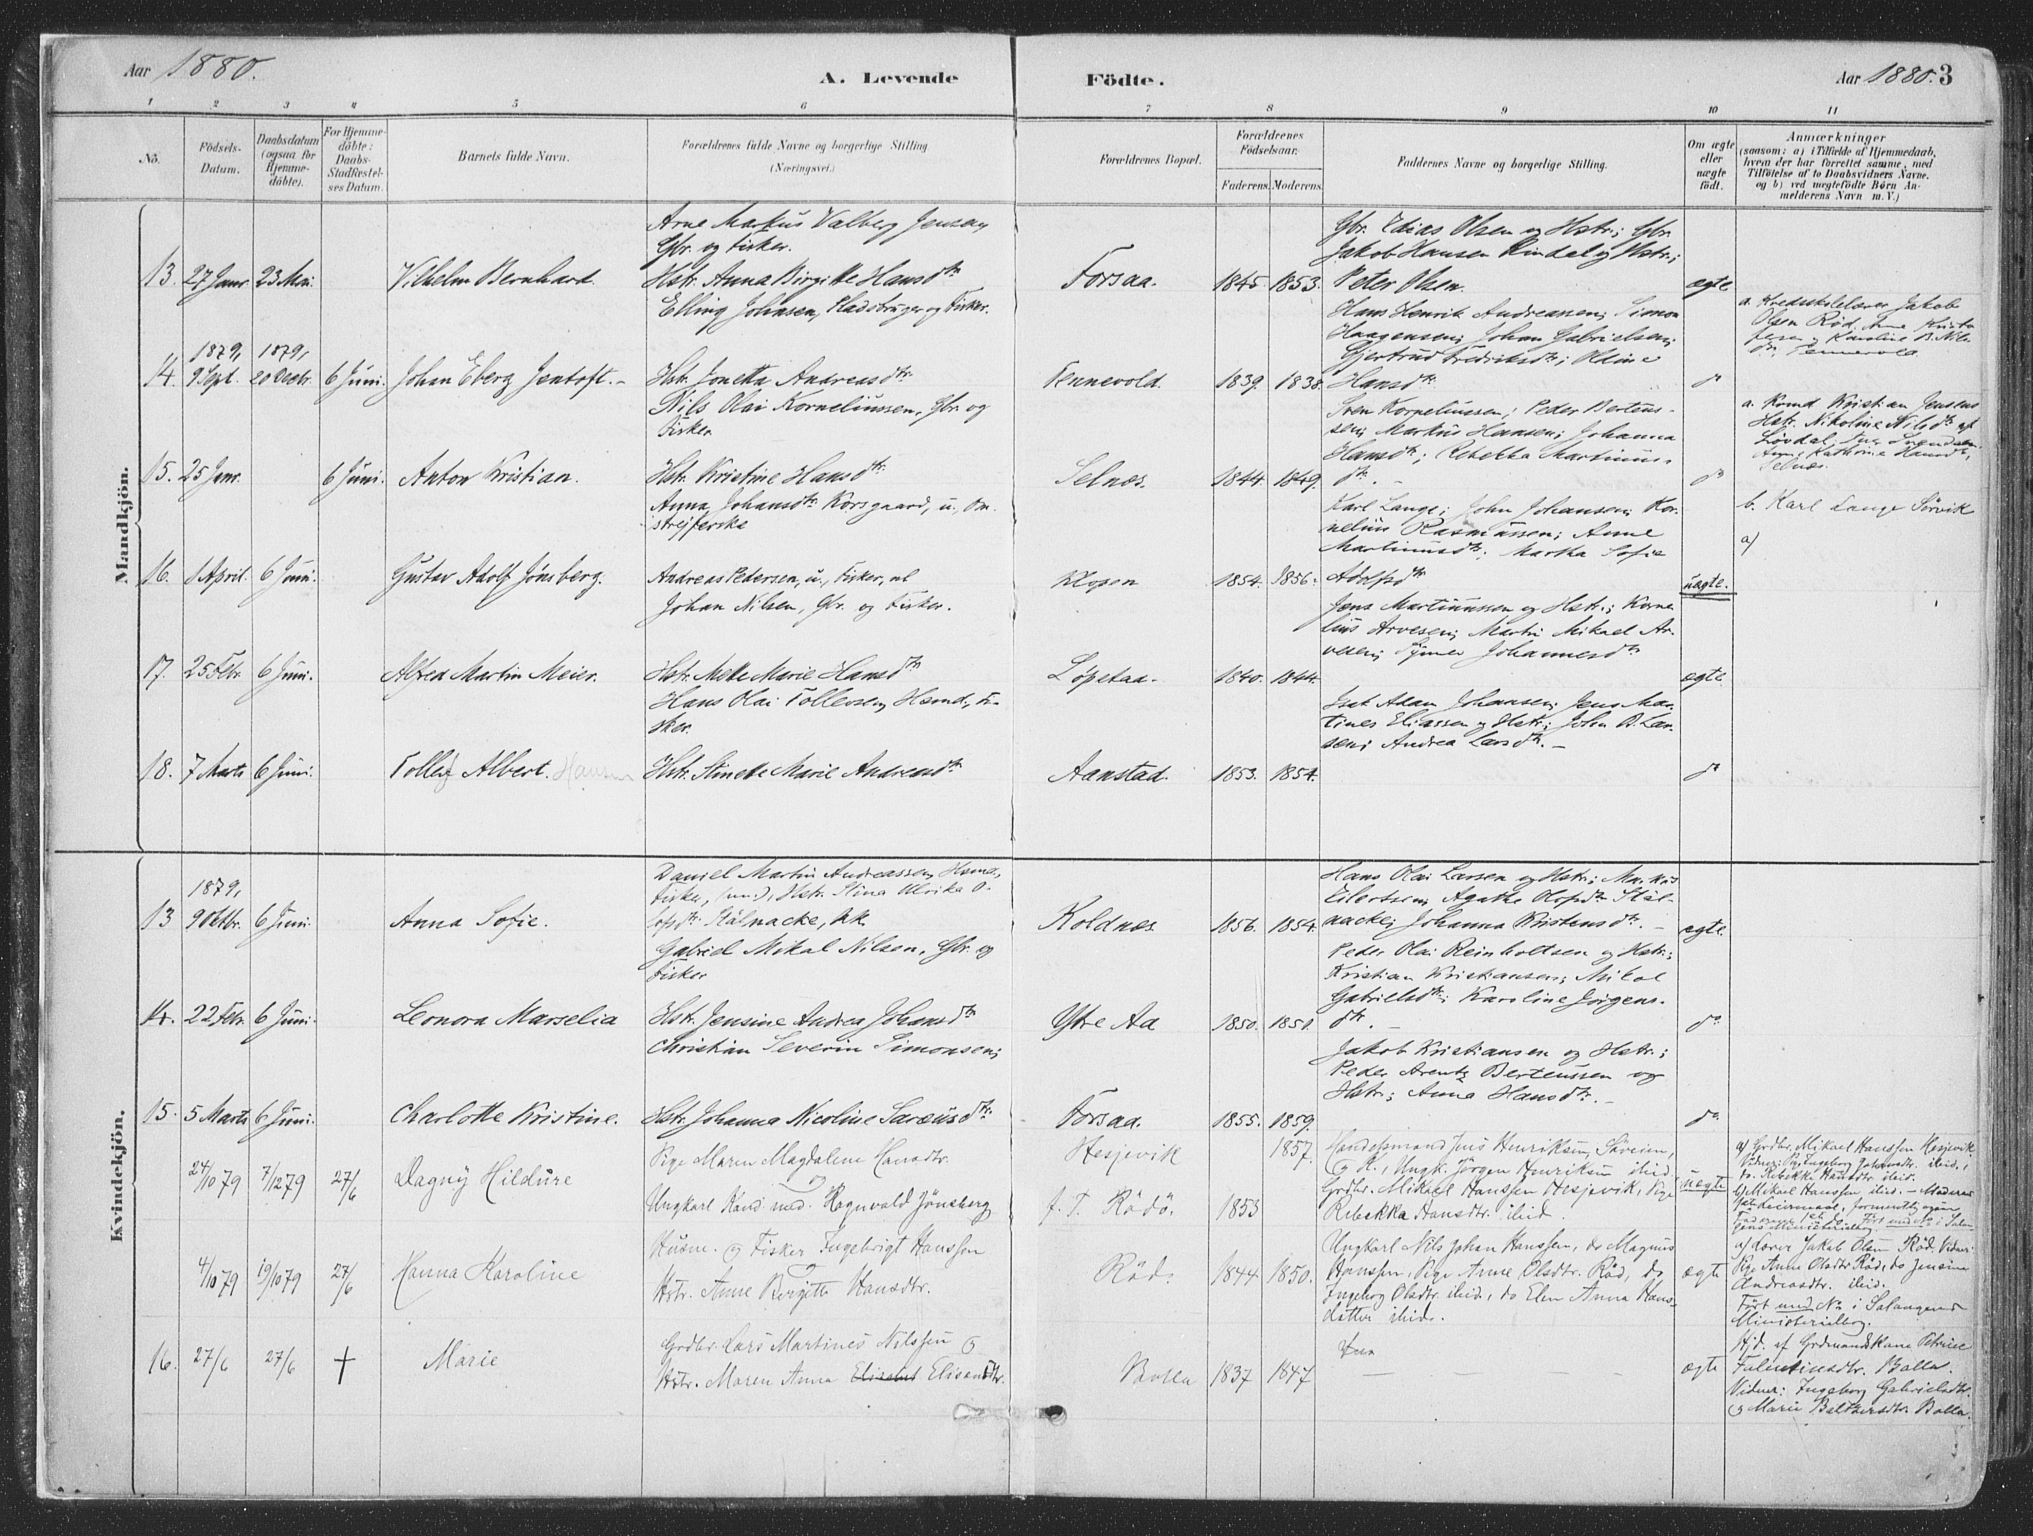 Aar 1880.
A. Levende
Födte.
Aar 1880. 3
1 2 3 4 5 6 7 8 9 10 11
No.
Födsels-
Datum.
Daabsdatum
(ogsaa for
Hjemme-
döbte).
For Hjemme-
döbte:
Daabs-
Stadfestel-
ses Datum.
Barnets fulde Navn.
Forældrenes fulde Navne og borgerlige Stilling
(Næringsvei.)
Forældrenes Bopæl.
Forældrenes
Födselsaar.
Faderens. Moderens.
Faddernes Navne og borgerlige Stilling.
Om ægte
eller
uægte
födt.
Anmærkninger
(saasom: a) i Tilfælde af Hjemmedaab,
hvem der har forrettet samme, med
Tilföielse af to Daabsvidners Navne.
og b) ved uægtefödte Börn An-
melderens Navn m. V.)
Mandkjön.
13. 27 Janr. 23 Mai.
Vilhelm Bernhard.
Arne Markus Valberg Jensen,
Gbr. og Fisker.
Hstr. Anna Birgitte Hansdtr.
Forsaa.
1845. 1853.
Gbr. Edias Olsen og Hstr.; Gbr.
Jakob Hansen Rindal og Hstr.;
Peter Olsen.
ægte
14. 1879, 9 Sept. 1879, 20 Decbr. 6 Juni.
Johan Eberg Jentoft.
Elling Johnsen, Pladsbruger og Fisker.
Hstr. Jonetta Andreasdtr.
Tennevold.
1839. 1838.
Hans Henrik Andreassen; Simon
Haagensen; Johan Gabrielsen;
Gjertrud Fredriksdtr.; Oldine
Hansdtr.
do
a. Kredsskolelærer Jakob
Olsen Röd.
Karoline B. Nils
dtr. Tennevold.
15. 25 Janr. 6 Juni.
Anton Kristian.
Nils Olai Korneliussen, Gbr. og
Fisker
Hstr. Kristine Hansdtr.
Selnæs.
1844. 1849.
Sven Korneliussen; Peder Berteus-
sen; Markus Hansen; Johanna
Hansdtr.; Rebekka Martinus-
dtr.
do
a. Kristian Jensens
Hstr. Nikoline Nilsdtr. af
Lövdal,
Anne Kathrine Hansdtr,
Selnæs.
16. 1 April. 6 Juni.
Gustav Adolf Jönsberg.
Anna Johansdtr. Korsgaard, u. Om-
strejferske
Andreas Pedersen, u., Fisker,
Klopen
1854. 1856.
Karl Lange; John Johansen; Kor-
nelius Rasmussen; Anne
Martinusdtr.; Martha Sofie
Adolfsdtr.
uægte.
b. Karl Lange Sörvik
a)
17. 25 Febr. 6 Juni.
Alfred Martin Meier.
Johan Nilsen, Gbr. og Fisker.
Hstr. Mette Marie Hansdtr.
Löpstad.
1840. 1844.
Jens Martinussen og Hstr.; Korne-
lius Arvesen; Martin Mikael Ar-
vesen; Johannesdtr.
ægte
18. 7 Marts 6 Juni.
Tollef Albert. Hansen
Hans Olai Tollevsen, Hsmd., Fi-
sker.
Hstr. Stinette Marie Andreasdtr.
Aanstad.
1853. 1854.
Adam Johansen; Jens Mar-
tines Eliassen og Hstr.; John B. Lar-
sen; Andrea Larsdtr.
do
Kvindekjön.
13 1879, 9 Oktbr. 6 Juni.
Anna Sofie.
Daniel Martin Andreassen, Hsmd.,
Fisker, Hstr. Stina Ulrika O-
lofsdtr. Stålnacke,
Koldnes
1856. 1854.
Hans Olai Larsen og Hstr.; Markus
Eilertsen; Agathe Olofsdtr. Stål-
nacke; Johanna Kristensdtr.
ægte
14. 22 Febr. 6 Juni.
Leonora Marselia
Gabriel Mikal Nilsen, Gbr. og
Fisker
Hstr. Jensine Andrea Johansdtr.
Ytre Aa
1850. 1851.
Peder Olai Reinholtsen og Hstr.;
Kristian Kristiansen; Mikal
Gabrielsdtr.; Karoline Jörgens-
dtr.
do
15. 5 Marts 6 Juni.
Charlotte Kristine.
Christian Severin Simonsen;
Hstr. Johanna Nicoline Saræusdtr.
Forsaa.
1855. 1859.
Jakob Kristiansen og Hstr.;
Peder Arentz Berteussen og
Hstr.; Anna Hansdtr.
do
24/10 79 7/12 79 27/6
Dagny Hildure
Pige Maren Magdalene Hansdtr.
Ungkarl Ragnvald Jönsberg
Hesjevik
f. T. Rödö.
1853 1857.
Handelsmand Jens Henriksen, Søveien,
og K., Ungk. Jörgen Henriksen ibid.
Grdbr. Mikael Hanssen Hesjevik, Pige
Rebekka Hansdtr. ibid.
uægte
a) Grdbr. Mikael Hanssen Hesjevik.
Vidner: Ingeborg Johansdtr. ibid.,
do. Rebekke Hansdtr. ibid.
b) Mikael Hanssen, ibid. – Moderens
4/10 79 19/10 79 27/6
Hanna Karoline
Husm. og Fisker Ingebrigt Hanssen
Hstr. Anne Birgitte Hansdtr.
Röd.
1844 1850.
Ungkarl Nils Johan Hanssen, do Magnus
Hanssen, Pige Anne Olsdtr. Röd, do
Ingeborg Olsdtr. ibid., do Elen Anna Hans-
datter ibid.
ægte
a) Lærer Jakob Olsen Röd. Vidner:
Pige Anne Olsdtr Röd, do Jensine
Andreasdtr. ibid.
Fört und. No i Salangens
Ministerialbog.
16. 27/6 27/6 †
Marie
Grdbr. Lars Martines Nilssen og
Hstr. Maren Anna Elisabet Elisendtr.
Bolla
1837 1847
ægte
Hjd. af Grdmandskone Petrine
Falentinsdtr. Bolla.
Vidner: Ingeborg Gabrielsdtr.
og Marie Balthersdtr. Bolla.